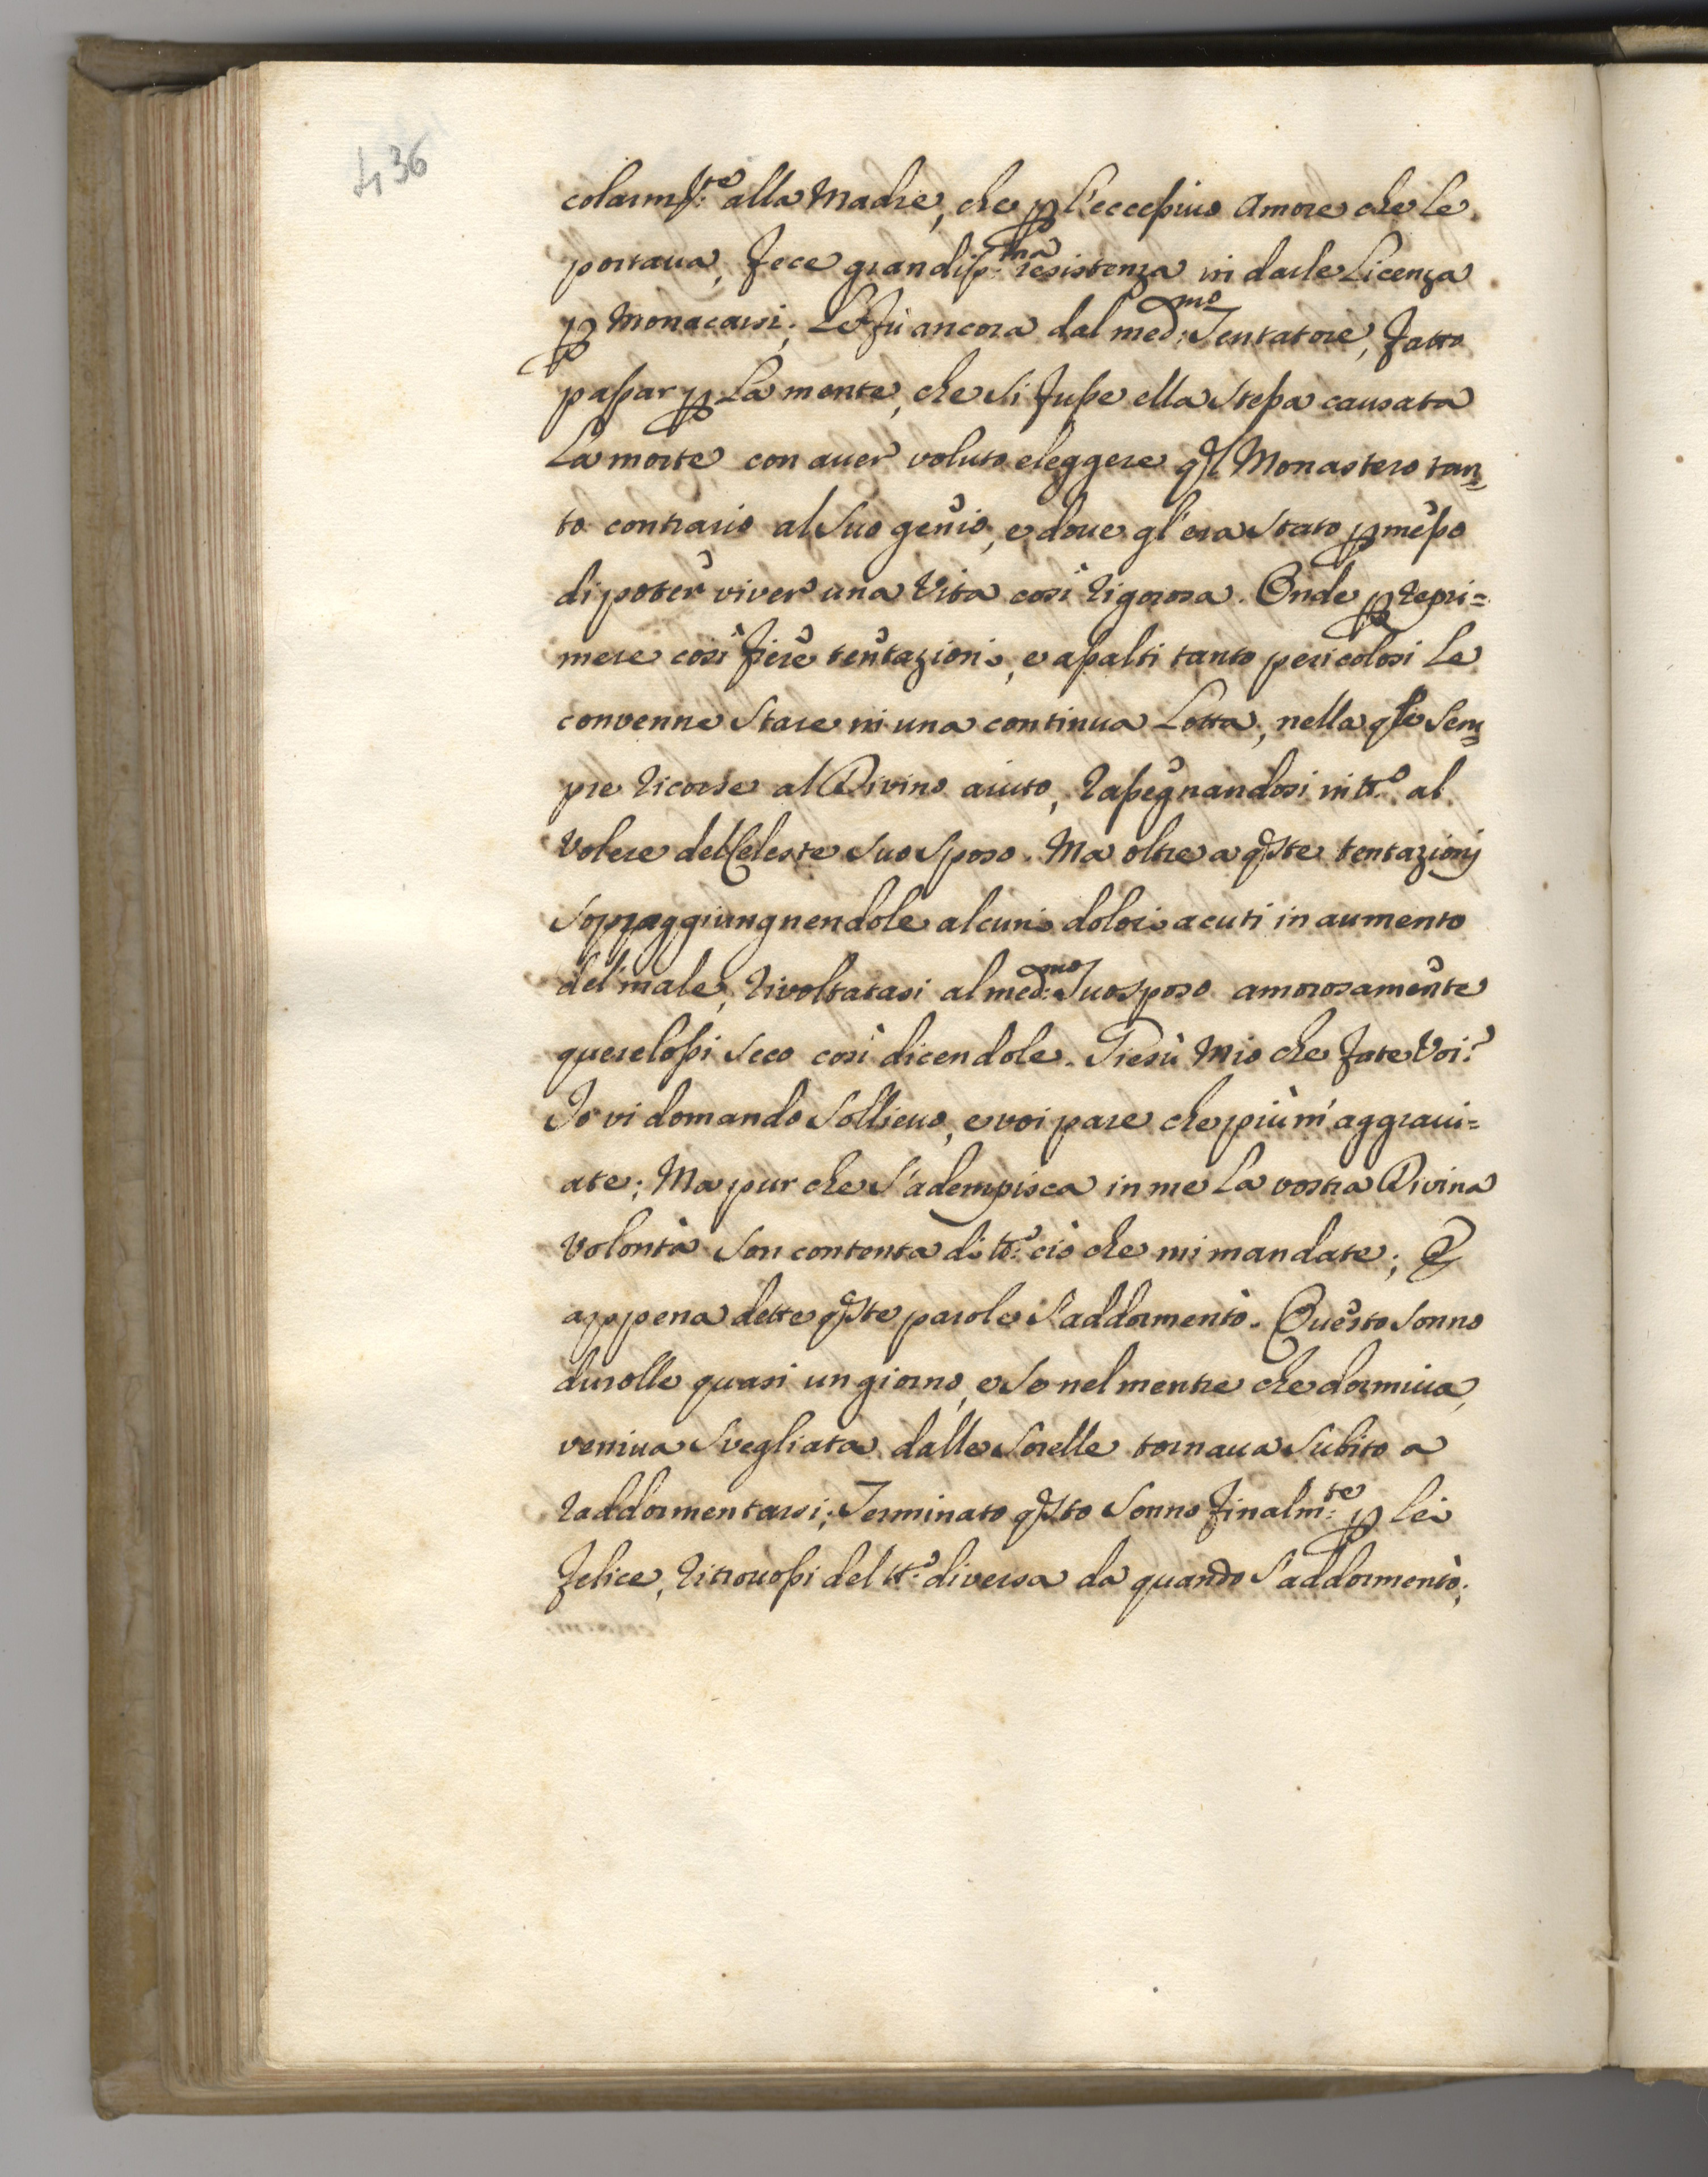 436
colarm:te alla Madre, che p l'eccessiuo Amore che le
portaua, fece grandiss:ma resistenza in darle Licenza
p Monacarsi; Le fù ancora dal med:mo Tentatore, fatto
passar p La mente, che si fusse ella stessa causata
La morte con auer voluto eleggere ql Monastero tan=
to contrario al suo genio, e doue gl'era stato pmesso
di poter viver una Vita così rigorosa. Onde p repri=
mere così fiere tentazioni, e assalti tanto pericolosi Le
convenne stare in una continua Lotta, nella qle sem=
pre ricorse al Divino aiuto, rassegnandosi in tt:o al
Volere del Celeste suo sposo. Ma oltre a qste tentazionj
soppraggiungnendole alcuni dolori acuti in aumento
del male, rivoltatasi al med:mo suo sposo amorosamente
querelossi seco così dicendole. Giesù Mio che fate Voi?
Io vi domando sollieuo, e voi pare che più m'aggraui=
ate; Ma pur che s'adempisca in me La vostra Divina
Volontà son contenta di tt:o ciò che mi mandate; E
appena dette qste parole s'addormentò. Questo sonno
durolle quasi un giorno, e se nel mentre che dormiua,
veniua svegliata dalle sorelle tornaua subito a
raddormentarsi; Terminato qsto sonno finalm:te p lei
felice, ritrouossi del tt:o diversa da quando s'addormentò;